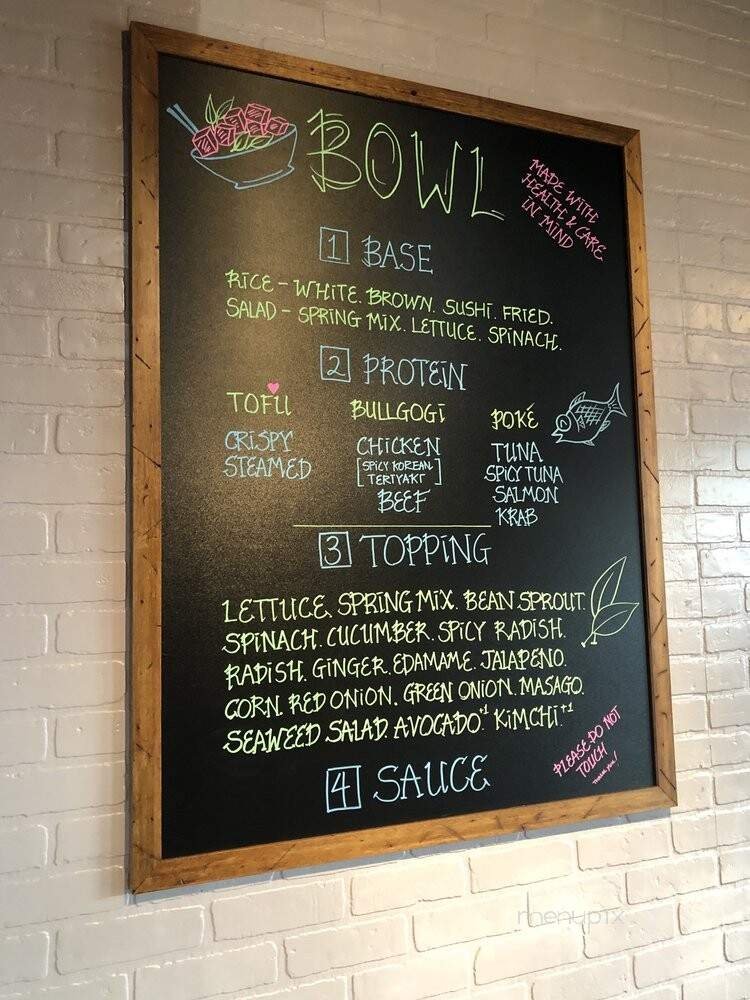 BOWL
MADE WITH
HEALTH & CARE
IN MIND
1 BASE
RICE - WHITE. BROWN. SUSHI. FRIED.
SALAD - SPRING MIX. LETTUCE. SPINACH.
2 PROTEIN
TOFU
CRISPY
STEAMED
BULLGOGI
CHICKEN
[SPICY KOREAN
TERIYAKI]
BEEF
POKÉ
TUNA
SPICY TUNA
SALMON
KRAB
3 TOPPING
LETTUCE. SPRING MIX. BEAN SPROUT.
SPINACH. CUCUMBER. SPICY RADISH.
RADISH. GINGER. EDAMAME. JALAPENO.
CORN. RED ONION. GREEN ONION. MASAGO.
SEAWEED SALAD. AVOCADO+1 KIMCHI+1
4 SAUCE
PLEASE DO NOT
TOUCH
THANK YOU!
menupix